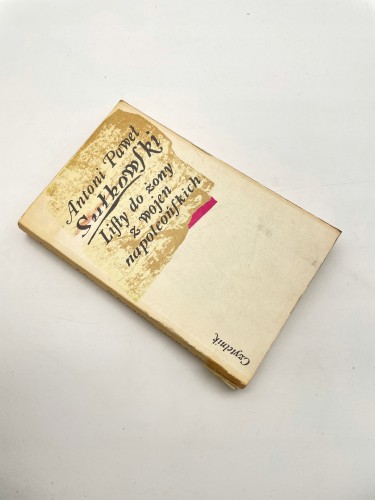 Antoni Paweł
Sułkowski
Listy do żony
z wojen
napoleońskich
Czytelnik